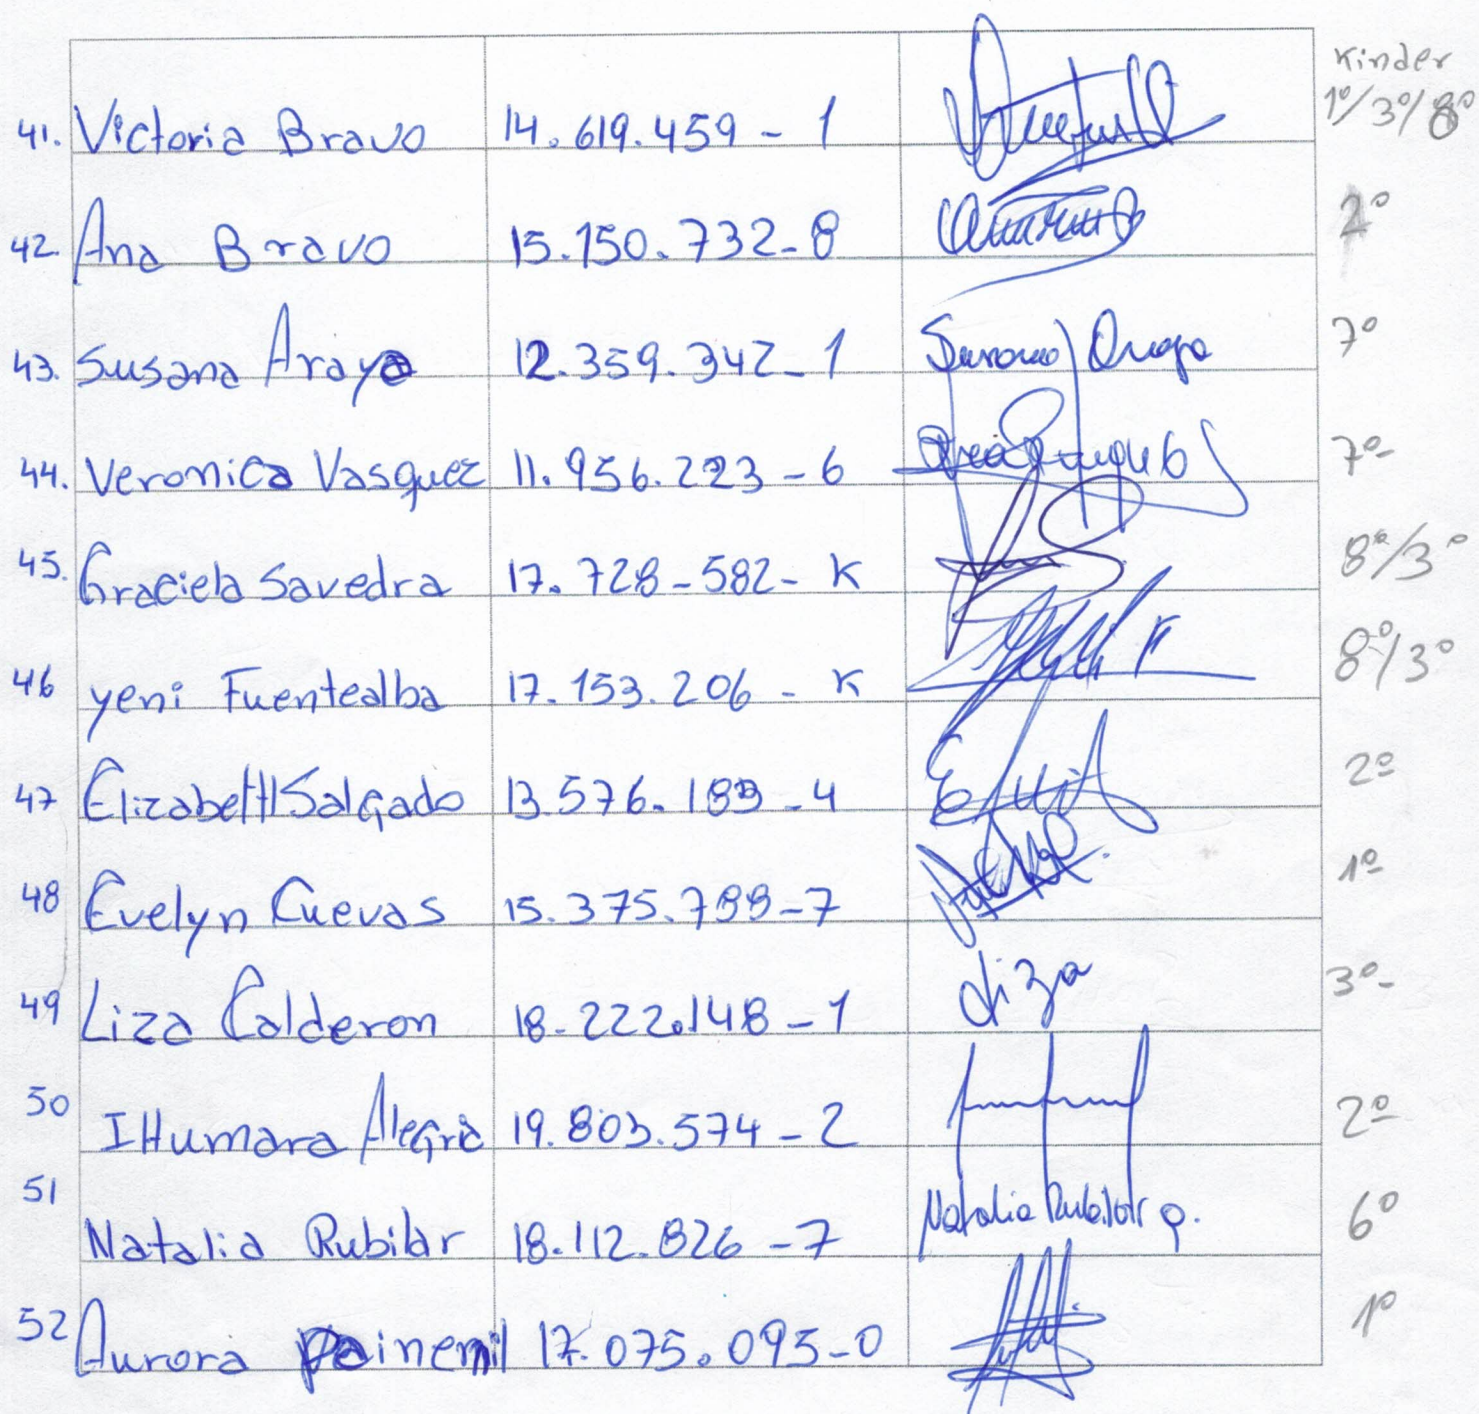 Kinder
41. Victoria Bravo 14.619.459-1 1º/3º/8º
42. Ana Bravo 15.150.732-8 2º
43. Susana Araya 12.359.342-1 7º
44. Veronica Vasquez 11.956.223-6 7º-
45. Graciela Savedra 17.728-582-K 8º/3º
46 yeni Fuentealba 17.153.206-K 8º/3º
47 Elizabeth Salgado 13.576.183-4 2º
48 Evelyn Cuevas 15.375.799-7 1º
49 Liza Calderon 18-222.148-1 Liza 3º-
50 IHumara Alegria 19.803.574-2 2º
51 Natalia Rubilar 18.112.826-7 Natalia Rubilar Q. 6º
52 Aurora Painemil 17.075.095-0 1º